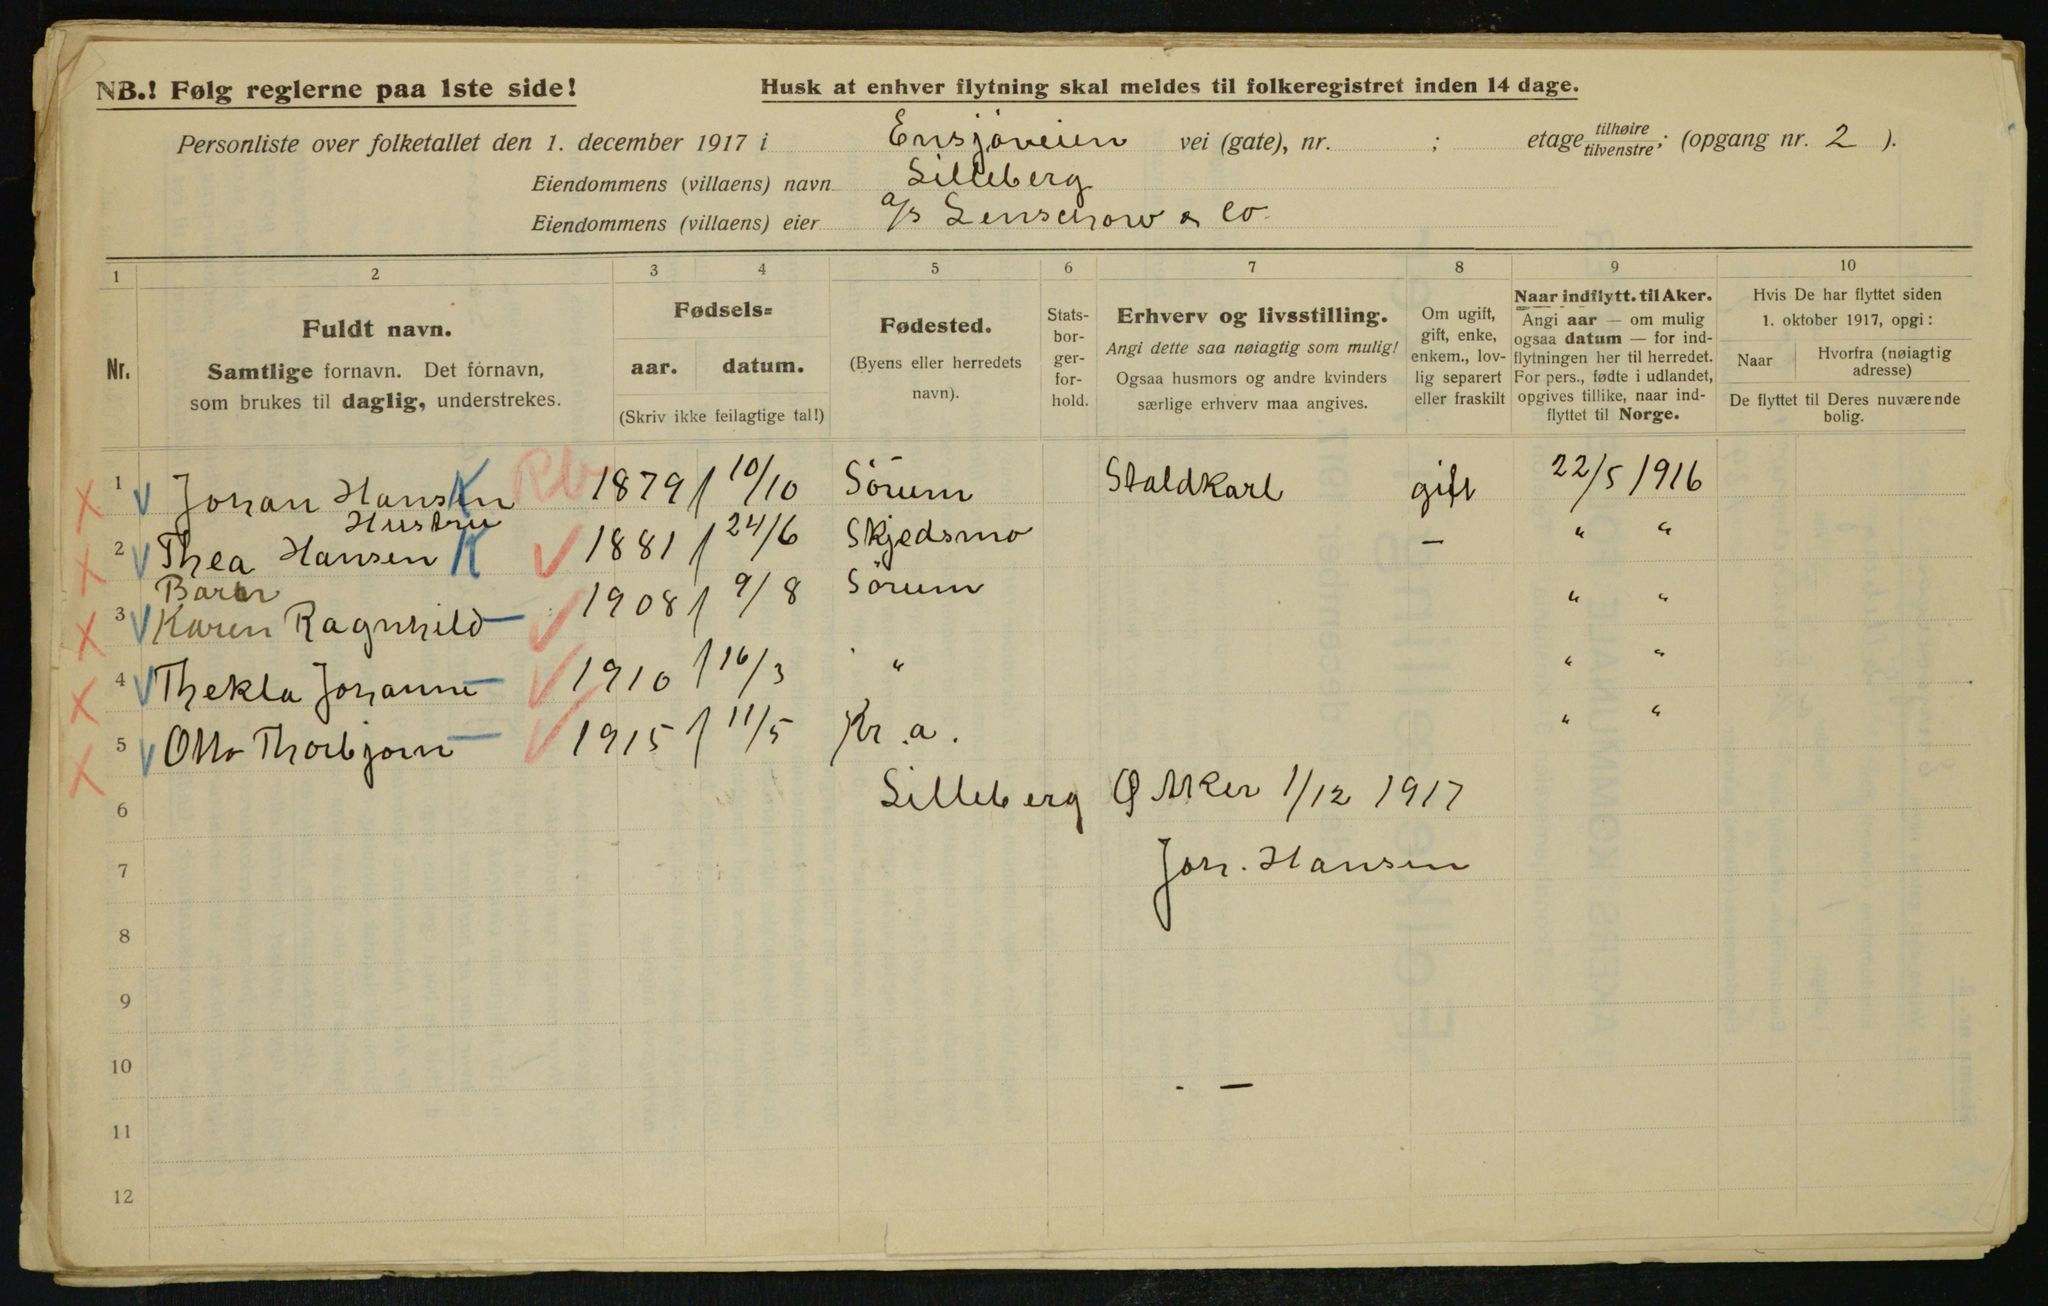 NB.! Følg reglerne paa 1ste side! Husk at enhver flytning skal meldes til folkeregistret inden 14 dage.
Personliste over folketallet den 1. december 1917 i Ensjøveien vei (gate), nr. ; etage tilhøire tilvenstre; (opgang nr. 2 ).
Eiendommens (villaens) navn Lilleberg
Eiendommens (villaens) eier a/s Lenschow & Co.
1 2 3 4 5 6 7 8 9 10
Nr.
Fuldt navn.
Samtlige fornavn. Det fornavn,
som brukes til daglig, understrekes.
Fødsels=
aar. datum.
(Skriv ikke feilagtige tal!)
Fødested.
(Byens eller herredets
navn).
Stats-
bor-
ger-
for-
hold.
Erhverv og livsstilling.
Angi dette saa nøiagtig som mulig!
Ogsaa husmors og andre kvinders
særlige erhverv maa angives.
Om ugift,
gift, enke,
enkem., lov-
lig separert
eller fraskilt
Naar indflytt. til Aker.
Angi aar — om mulig
ogsaa datum — for ind-
flytningen her til herredet.
For pers., fødte i udlandet,
opgives tillike, naar ind-
flyttet til Norge.
Hvis De har flyttet siden
1. oktober 1917, opgi:
Naar Hvorfra (nøiagtig
adresse)
De flyttet til Deres nuværende
bolig.
1 Johan Hansen K Rb 1879 10/10 Sörum Staldkarl gift 22/5 1916
Hustru
2 Thea Hansen K 1881 24/6 Skjedsmo — " "
Barn
3 Karen Ragnhild 1908 9/8 Sörum " "
4 Thekla Johanne 1910 16/3 " " "
5 Otto Thorbjørn 1915 11/5 Kr.a. " "
6 Lilleberg Ø Aker 1/12 1917
7 Joh. Hansen
8
9
10
11
12